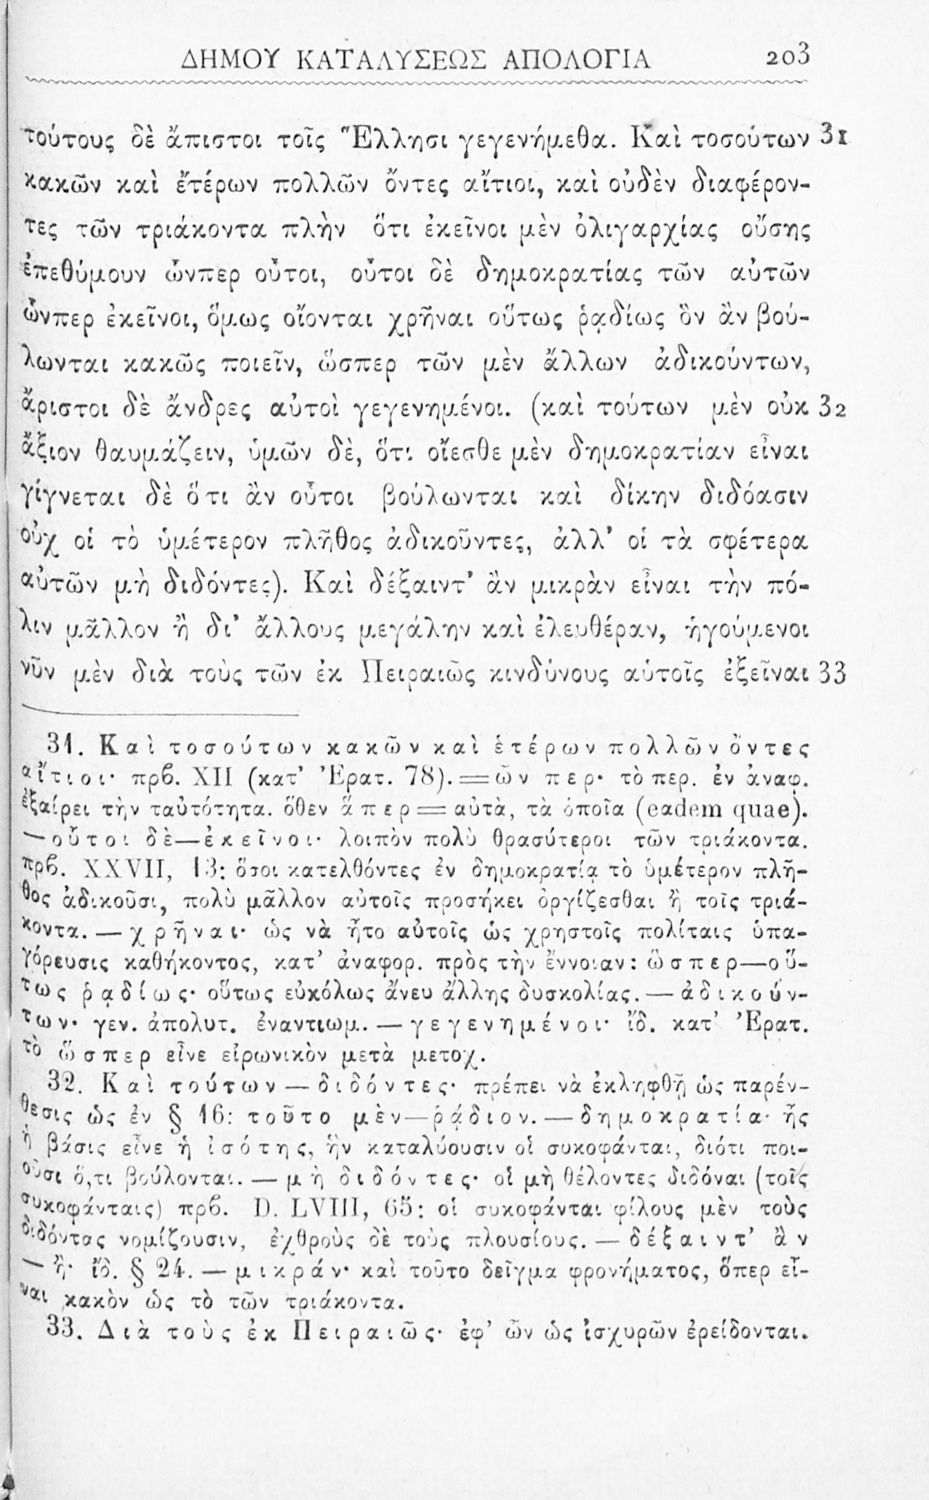 ΔΗΜΟΥ ΚΑΤΑΛΥΣΕΩΣ ΑΠΟΛΟΓΙΑ 203
τούτους δὲ ἄπιστοι τοῖς Ἕλλησι γεγενήμεθα. Καὶ τοσούτων 31
κακῶν καὶ ἑτέρων πολλῶν ὄντες αἴτιοι, καὶ οὐδὲν διαφέρον-
τες τῶν τριάκοντα πλὴν ὅτι ἐκεῖνοι μὲν ὀλιγαρχίας οὔσης
ἐπεθύμουν ὧνπερ οὗτοι, οὗτοι δὲ δημοκρατίας τῶν αὐτῶν
ὧνπερ ἐκεῖνοι, ὅμως οἴονται χρῆναι οὕτως ῥᾳδίως ὃν ἂν βού-
λωνται κακῶς ποιεῖν, ὥσπερ τῶν μὲν ἄλλων ἀδικούντων,
ἄριστοι δὲ ἄνδρες αὐτοὶ γεγενημένοι. (καὶ τούτων μὲν οὐκ 32
ἄξιον θαυμάζειν, ὑμῶν δὲ, ὅτι οἴεσθε μὲν δημοκρατίαν εἶναι
γίγνεται δὲ ὅτι ἂν οὗτοι βούλωνται καὶ δίκην διδόασιν
οὐχ οἱ τὸ ὑμέτερον πλῆθος ἀδικοῦντες, ἀλλ' οἱ τὰ σφέτερα
αὐτῶν μὴ διδόντες). Καὶ δέξαιντ' ἂν μικρὰν εἶναι τὴν πό-
λιν μᾶλλον ἢ δι' ἄλλους μεγάλην καὶ ἐλευθέραν, ἡγούμενοι
νῦν μὲν διὰ τοὺς τῶν ἐκ Πειραιῶς κινδύνους αὑτοῖς ἐξεῖναι 33
31. Καὶ τοσούτων κακῶν καὶ ἑτέρων πολλῶν ὄντες
αἴτιοι· πρβ. XII (κατ' Ἐρατ. 78).=ὧν περ· τὸ περ. ἐν ἀναφ.
ἐξαίρει τὴν ταὐτότητα. ὅθεν ἅπερ=αὐτὰ, τὰ ὁποῖα (eadem quae).
—οὗτοι δὲ—ἐκεῖνοι· λοιπὸν πολὺ θρασύτεροι τῶν τριάκοντα.
πρβ. XXVII, 13: ὅσοι κατελθόντες ἐν δημοκρατίᾳ τὸ ὑμέτερον πλῆ-
θος ἀδικοῦσι, πολὺ μᾶλλον αὐτοῖς προσήκει ὀργίζεσθαι ἢ τοῖς τριά-
κοντα. — χρῆναι· ὡς νὰ ἦτο αὐτοῖς ὡς χρηστοῖς πολίταις ὑπα-
γόρευσις καθήκοντος, κατ' ἀναφορ. πρὸς τὴν ἔννοιαν: ὥσπερ—οὕ-
τως ῥᾳδίως· οὕτως εὐκόλως ἄνευ ἄλλης δυσκολίας. — ἀδικούν-
των· γεν. ἀπολυτ. ἐναντιωμ. — γεγενημένοι· ἴδ. κατ' Ἐρατ.
τὸ ὥσπερ εἶνε εἰρωνικὸν μετὰ μετοχ.
32. Καὶ τούτων — διδόντες· πρέπει νὰ ἐκληφθῇ ὡς παρέν-
θεσις ὡς ἐν § 16: τοῦτο μὲν—ῥάδιον. — δημοκρατία· ἧς
ἡ βάσις εἶνε ἡ ἰσότης, ἣν καταλύουσιν οἱ συκοφάνται, διότι ποι-
οῦσι ὅ,τι βούλονται. — μὴ διδόντες· οἱ μὴ θέλοντες διδόναι (τοῖς
συκοφάνταις) πρβ. D. LVIII, 65: οἱ συκοφάνται φίλους μὲν τοὺς
διδόντας νομίζουσιν, ἐχθροὺς δὲ τοὺς πλουσίους. — δέξαιντ' ἂν
— ἢ· ἴδ. § 24. — μικράν· καὶ τοῦτο δεῖγμα φρονήματος, ὅπερ εἶ-
ναι κακὸν ὡς τὸ τῶν τριάκοντα.
33. Διὰ τοὺς ἐκ Πειραιῶς· ἐφ' ὧν ὡς ἰσχυρῶν ἐρείδονται.